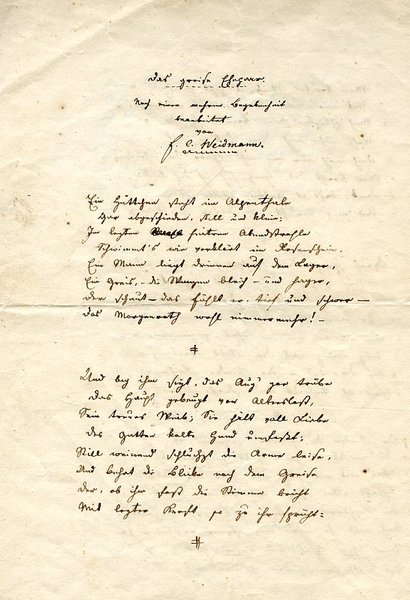 Das greise Ehepaar.
Nach einer wahren Begebenheit
bearbeitet
von
F. C. Weidmann.
Ein Hüttchen steht im Alpenthale
Gar abgeschieden, still und klein;
Im letzten heitern Abendstrahle
Schwimmt's wie verklärt im Rosenschein.
Ein Mann liegt drinnen auf dem Lager,
Ein Greis, – die Wangen bleich – und hager,
der schaut – das fühlt er, tief und schwer –
das Morgenroth wohl nimmermehr! –
Und bey ihm sitzt, das Aug' gar trübe
das Haupt gebeugt von Alterslast,
Sein treues Weib; Sie hält voll Liebe
des Gatten kalte Hand umfaßt;
Still weinend schluchzt die Arme leise,
Und hebet die Blicke nach dem Greise
der, ob ihm fast die Stimme bricht
Mit letzter Kraft so zu ihr spricht: